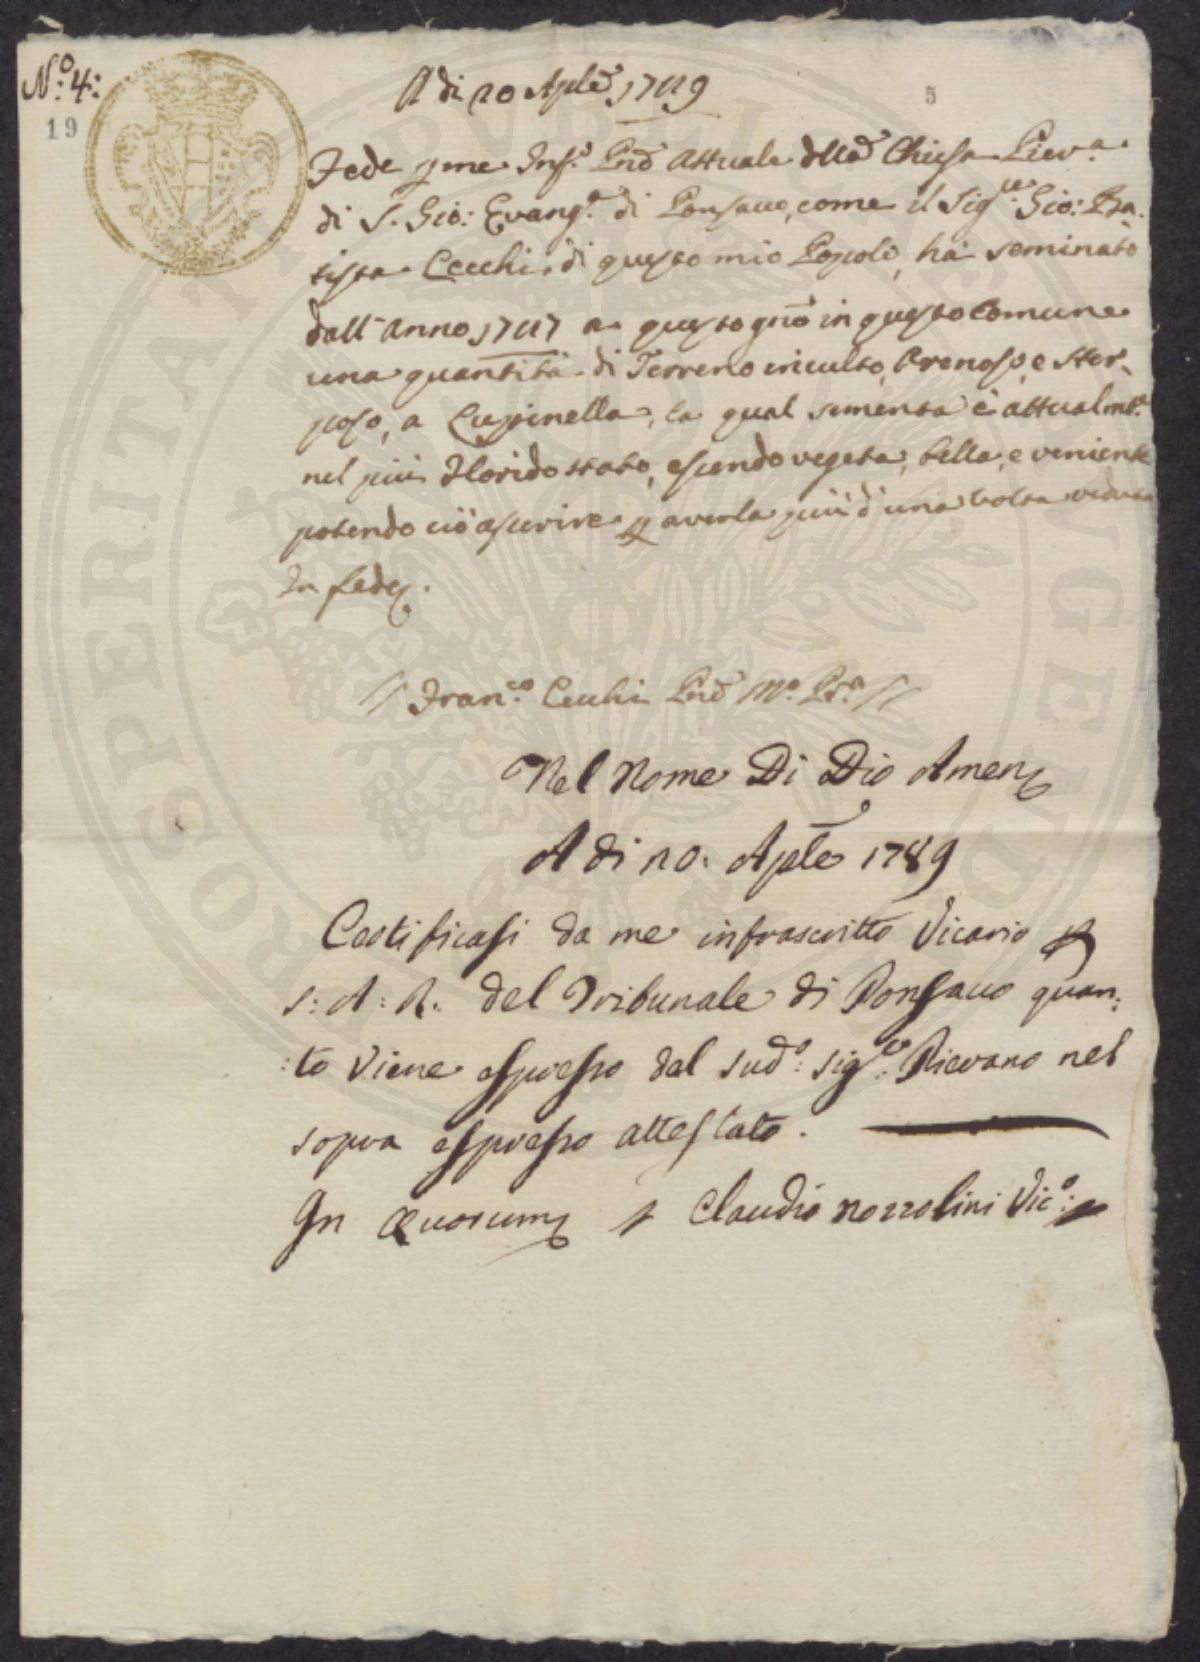 N.º 4:
19
5
A di 20 Aple 1789
Fede p me Infº Pnō Attuale dlla Chiesa Pievª
di S. Gio: Evangª di Ponsacco, come il Sigre Gio: Ba-
tista Cecchi di questo mio Popolo, ha seminato
dall'anno 1787 a questo gnō in questo Comune
una quantità di Terreno inculto, Arenoso, e ster-
poso, a Lupinella, la qual sementa è attualmte
nel più Florido stato, essendo vegeta, bella, e veniente
potendo ciò asserire p averla più d'una volta veduta
In fede
// Francº Cecchi Pnō Mº Prª //
Nel Nome Di Dio Amen
A di 20: Aple 1789
Certificasi da me infrascritto Vicario p
S: A: R: del Tribunale di Ponsacco quan:
:to viene espresso dal sudº: sigre: Pievano nel
sopra espresso attestato.
In Quorum Claudio Nozzolini Vicº:
PROSPERITATI PUBLICAE AUGENDAE